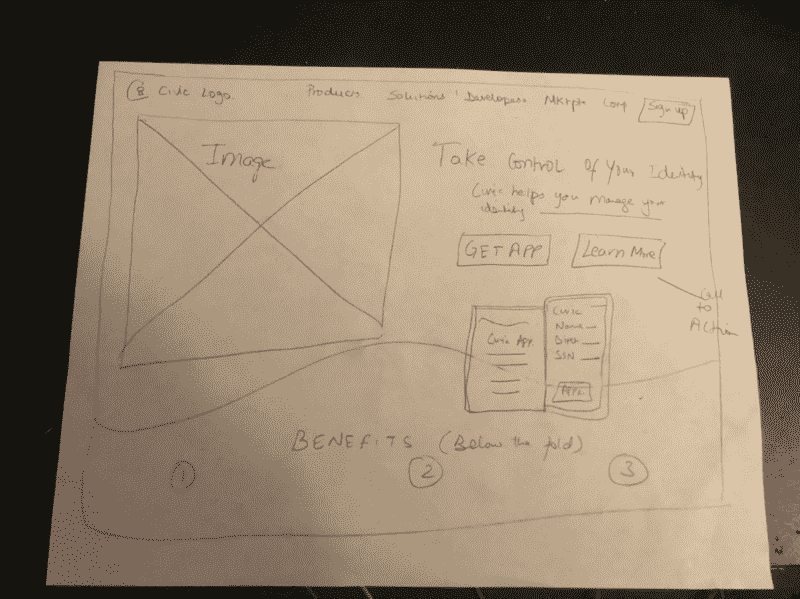 Civic Logo Products Solutions Developers Mktplc Comp Sign up
Image
Take Control of Your Identity
Civic helps you manage your
identity
GET APP Learn More
Call
to
Action
Civic App
Civic
Name
Direct
SSN
APPL
BENEFITS (Below the fold)
1 2 3